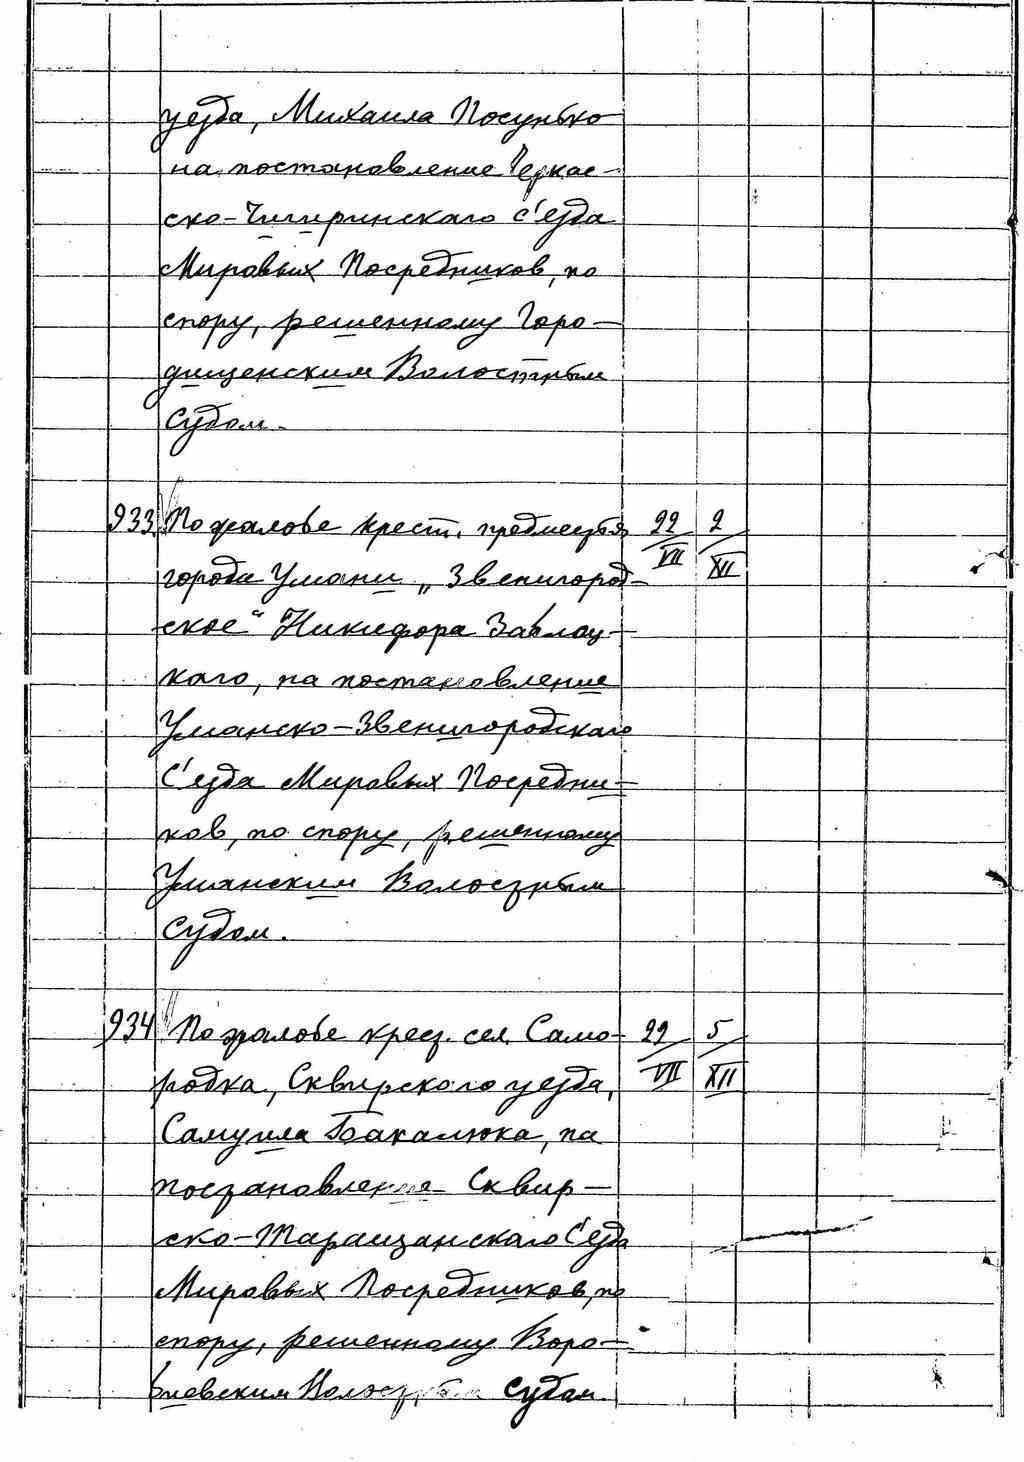 уезда, Михаила Посунько
на постановление Черкас-
ско-Чигиринскаго с'езда
Мировых Посредников, по
спору, решенному Горо-
дищенским Волостным
Судом.
933. По жалобе крест. предместья 22/VII 2/XII
города Умани „Звенигород-
ское“ Никифора Завлоц-
каго, на постановление
Уманско-Звенигородскаго
С'езда Мировых Посредни-
ков, по спору, решенному
Уманским Волостным
Судом.
934 По жалобе крест. сел. Само- 22/VII 5/XII
родка, Сквирского уезда,
Самуила Бакалюка, на
постановление Сквир-
ско-Таращанскаго С'езда
Мировых Посредников, по
спору, решенному Воро-
биевским Волостным Судом.